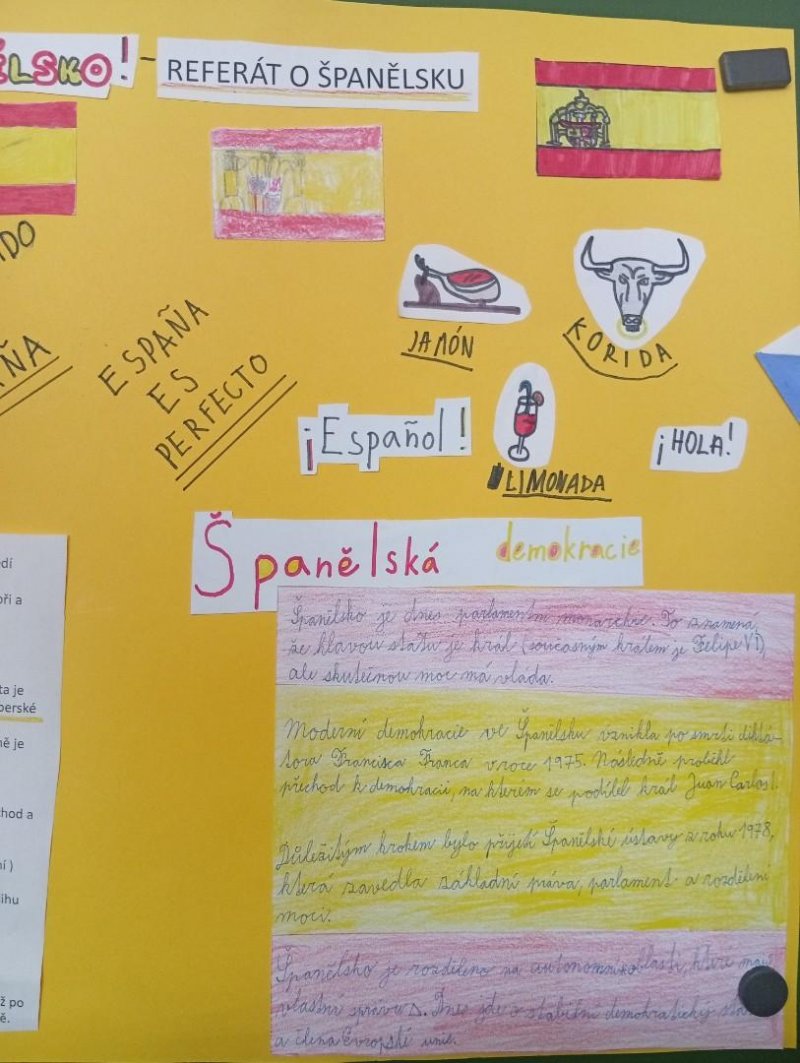 ĚLSKO! - REFERÁT O ŠPANĚLSKU
ESPAÑA
ES
PERFECTO
JAMÓN
KORIDA
¡Español!
LIMONADA
¡HOLA!
Španělská demokracie
Španělsko je dnes parlamentní monarchie. To znamená,
že hlavou státu je král (současným králem je Felipe VI),
ale skutečnou moc má vláda.
Moderní demokracie ve Španělsku vznikla po smrti diktá-
tora Francisca Franca v roce 1975. Následně proběhl
přechod k demokracii, na kterém se podílel král Juan Carlos I.
Důležitým krokem bylo přijetí Španělské ústavy z roku 1978,
která zavedla základní práva, parlament a rozdělení
moci.
Španělsko je rozděleno na autonomní oblasti, které mají
vlastní správu. Dnes jde o stabilní demokratický
a člena Evropské unie.
ta je
perské
ně je
chod a
ní)
ihu
ž po
ě.